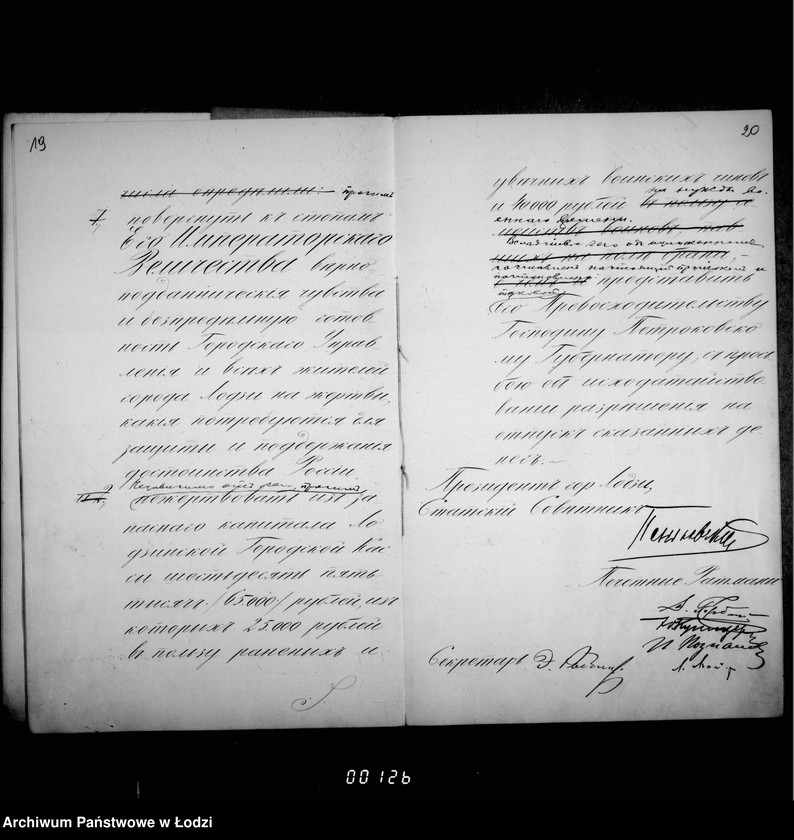 19
просить
повергнуть къ стопамъ
Его Императорскаго
Величества верно
подданническія чувства
и безпредѣльную готов
ность Городскаго Управ
ленія и всѣхъ жителей
города Лодзи на жертвы,
какія потребуются для
защиты и поддержанія
достоинства Россіи
Независимо отъ сего,
пожертвовать изъ за
паснаго капитала Ло
дзинской Городской Кас
сы шестьдесятъ пять
тысячъ /65.000/ рублей, изъ
которыхъ 25.000 рублей
въ пользу раненыхъ и
20
увѣчныхъ воинскихъ чиновъ
на нужды во.
и 40000 рублей
еннаго времени.
представить
Его Превосходительству
Господину Петроковско
му Губернатору, съ прось
бою объ исходатайство
ваніи разрѣшенія на
отпускъ сказанныхъ де
негъ.
Президентъ гор. Лодзи,
Статскій Совѣтникъ
Пеньковскій
Почетные Ратманы
Секретарь
00126
Archiwum Państwowe w Łodzi